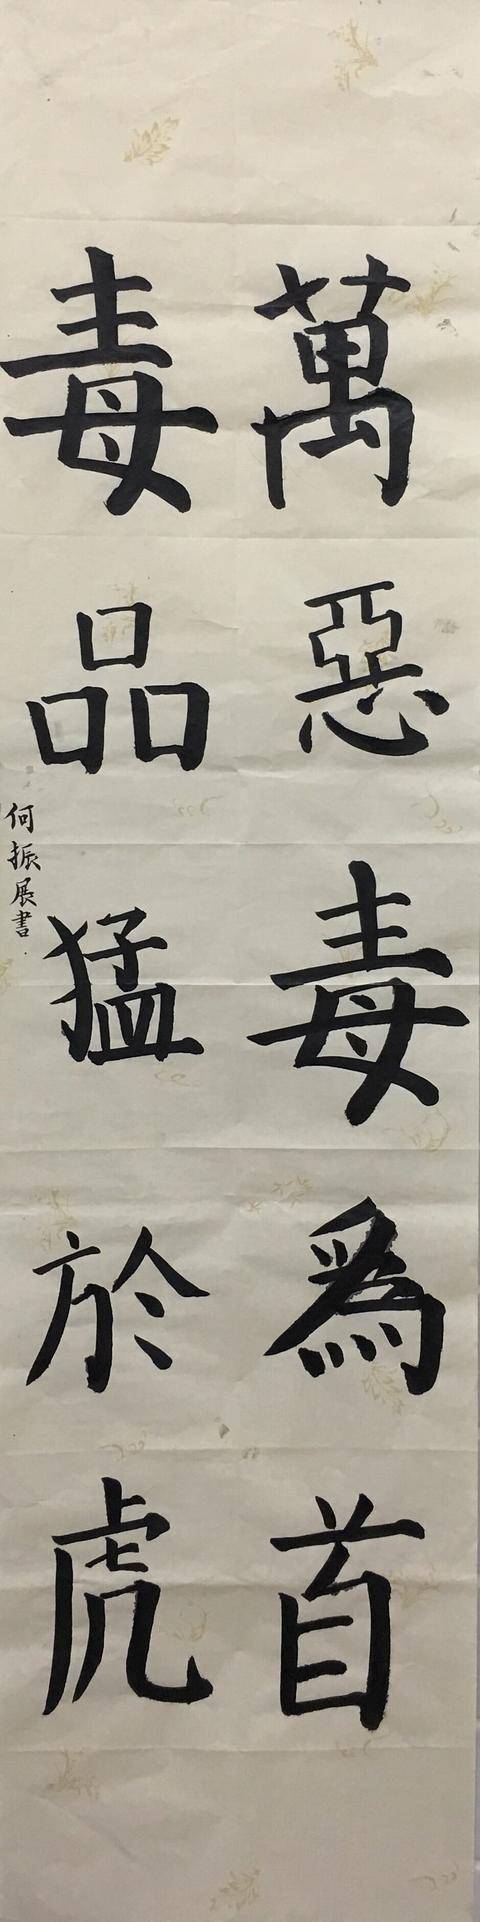 萬惡毒為首
毒品猛於虎
何振展書